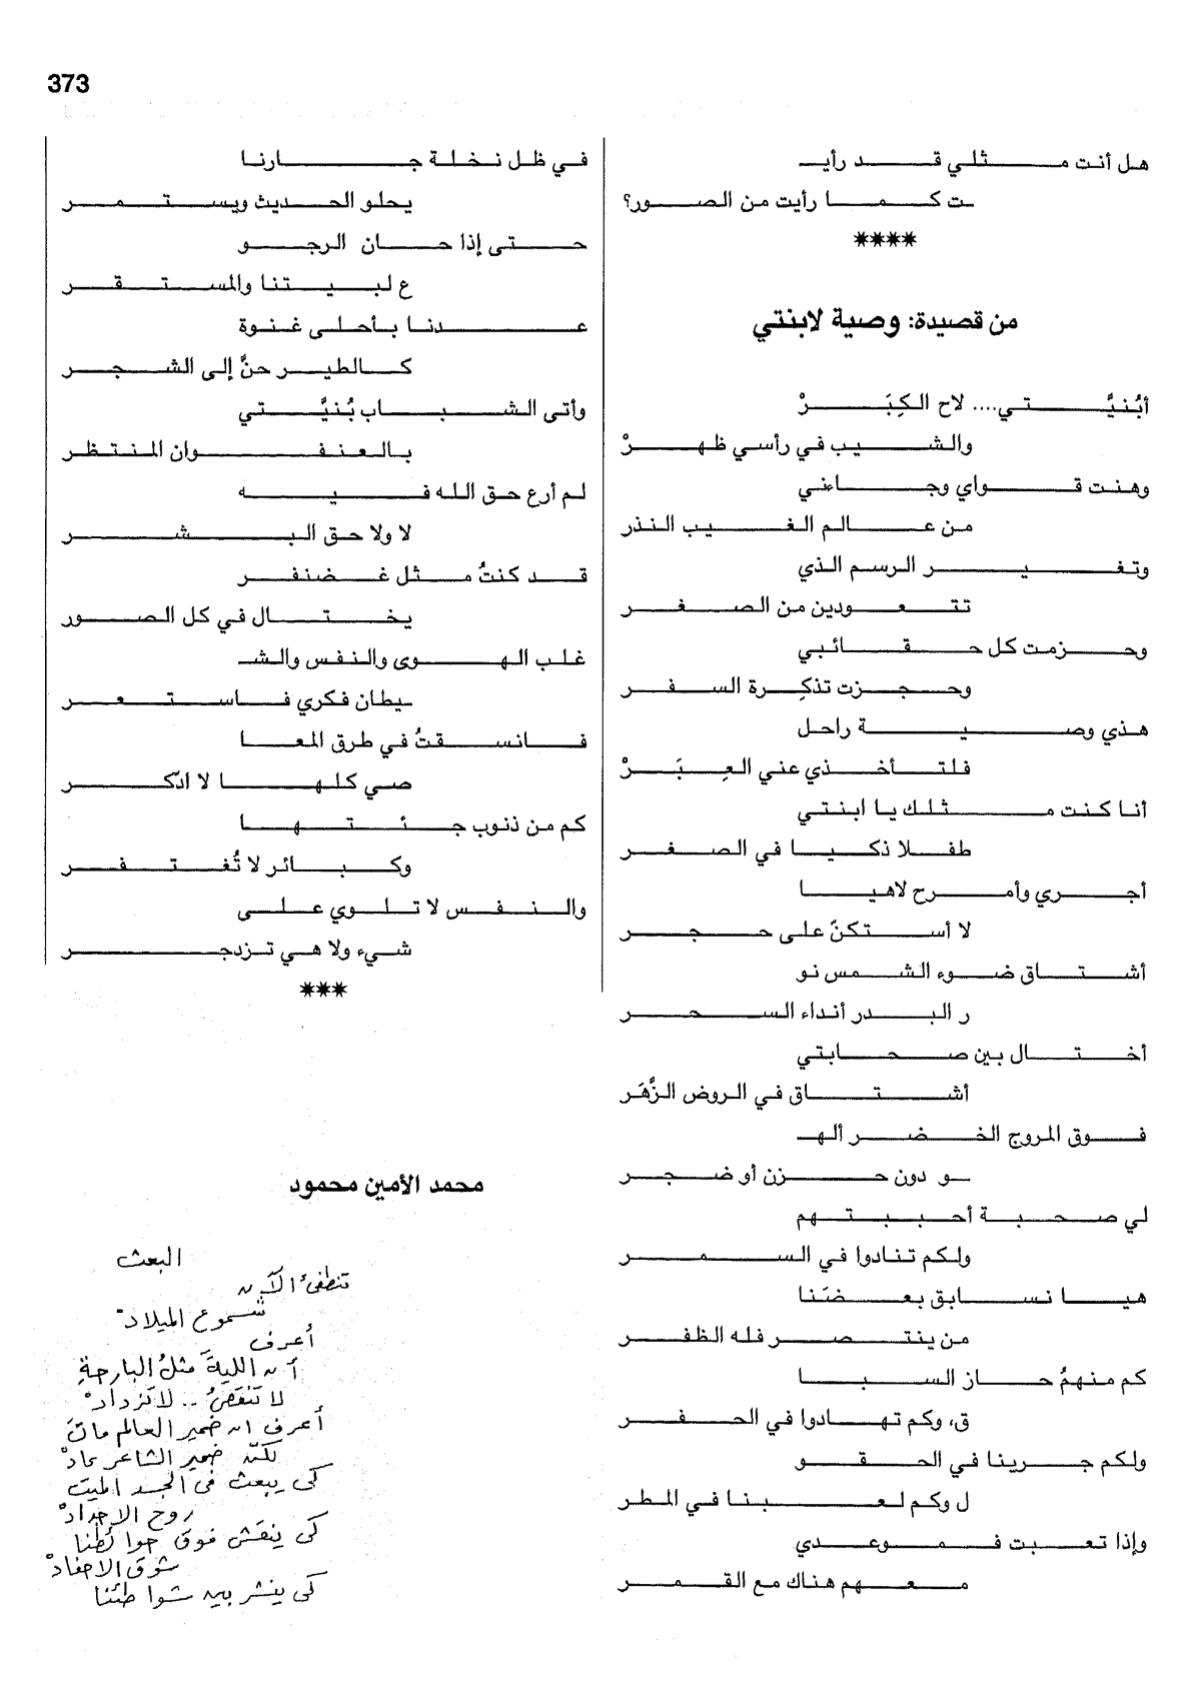 373
هل أنت مثلي قد رأيـ
ـت كما رأيت من الصور؟
****
من قصيدة: وصية لابنتي
أبُنيَّتي.... لاح الكِبَرْ
والشيب في رأسي ظهرْ
وهنت قواي وجاءني
من عالم الغيب النذر
وتغير الرسم الذي
تتعودين من الصغر
وحزمت كل حقائبي
وحجزت تذكِرة السفر
هذي وصية راحل
فلتأخذي عني العِبَرْ
أنا كنت مثلك يا ابنتي
طفلا ذكيا في الصغر
أجري وأمرح لاهيا
لا أستكنّ على حجر
أشتاق ضوء الشمس نو
ر البدر أنداء السحر
أختال بين صحابتي
أشتاق في الروض الزَّهَر
فوق المروج الخضر ألهـ
ـو دون حزن أو ضجر
لي صحبة أحببتهم
ولكم تنادوا في السمر
هيا نسابق بعضَنا
من ينتصر فله الظفر
كم منهمُ حاز السبا
ق، وكم تهادوا في الحفر
ولكم جرينا في الحقو
ل وكم لعبنا في المطر
وإذا تعبت فموعدي
معهم هناك مع القمر
في ظل نخلة جارنا
يحلو الحديث ويستمر
حتى إذا حان الرجو
ع لبيتنا والمستقر
عدنا بأحلى غنوة
كالطير حنَّ إلى الشجر
وأتى الشباب بُنيَّتي
بالعنفوان المنتظر
لم أرع حق الله فيه
لا ولا حق البشر
قد كنتُ مثل غضنفر
يختال في كل الصور
غلب الهوى والنفس والشـ
ـيطان فكري فاستعر
فانسقتُ في طرق المعا
صي كلها لا ادّكر
كم من ذنوب جئتها
وكبائر لا تُغتفر
والنفس لا تلوي على
شيء ولا هي تزدجر
***
محمد الأمين محمود
البعث
تنطفئ الآن
شموع الميلادْ
أعرف
أن الليلةَ مثلُ البارحةِ
لا تنقصُ .. لا تزدادْ
أعرف ان ضمير العالم ماتَ
لكنّ ضمير الشاعر عادْ
كى يبعث فى الجسد الميت
روح الاجدادْ
كى ينقش فوق حوائطنا
شوق الاحفادْ
كى ينشر بين شواطئنا